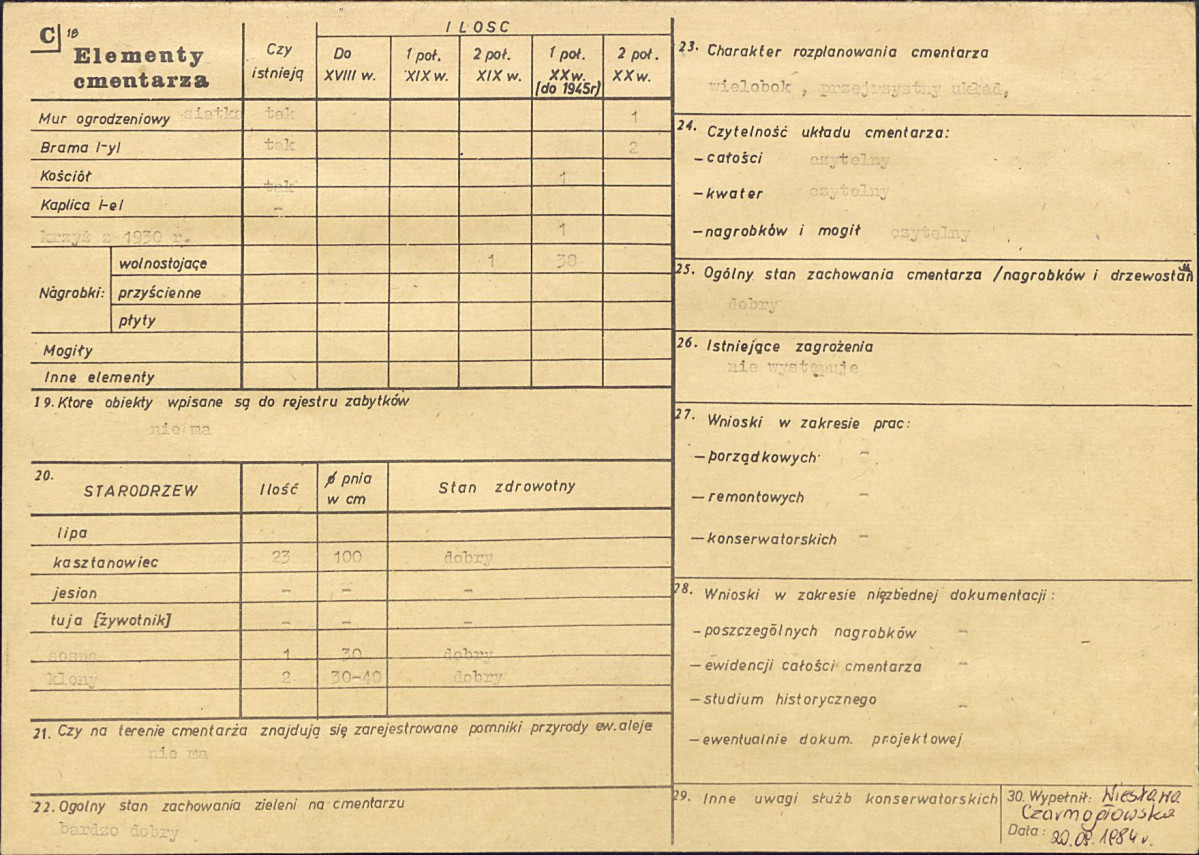 C 18
Elementy cmentarza
Czy istnieją
ILOSC
Do XVIII w.
1 poł. XIX w.
2 poł. XIX w.
1 poł. XX w. (do 1945r)
2 poł. XX w.
Mur ogrodzeniowy siatka tak 1
Brama I-yl tak 2
Kościół tak 1
Kaplica i-el –
krzyż z 1930 r. 1
Nagrobki:
wolnostojące 1 38
przyścienne
płyty
Mogiły
Inne elementy
19. Ktore obiekty wpisane są do rejestru zabytków
nie ma
20. STARODRZEW Ilość ø pnia w cm Stan zdrowotny
lipa
kasztanowiec 23 100 dobry
jesion – – –
tuja [żywotnik] – – –
sosna 1 30 dobry
klony 2 30-40 dobry
21. Czy na terenie cmentarza znajdują się zarejestrowane pomniki przyrody ew. aleje
nie ma
22. Ogolny stan zachowania zieleni na cmentarzu
bardzo dobry
23. Charakter rozplanowania cmentarza
wielobok , przejrzystny układ,
24. Czytelność układu cmentarza:
– całości czytelny
– kwater czytelny
– nagrobków i mogił czytelny
25. Ogólny stan zachowania cmentarza /nagrobków i drzewostanu
dobry
26. Istniejące zagrożenia
nie występuje
27. Wnioski w zakresie prac:
– porządkowych –
– remontowych –
– konserwatorskich –
28. Wnioski w zakresie nięzbędnej dokumentacji:
– poszczególnych nagrobków –
– ewidencji całości cmentarza –
– studium historycznego –
– ewentualnie dokum. projektowej
29. Inne uwagi służb konserwatorskich
30. Wypełnił:
Data: 20.09.1984 r.